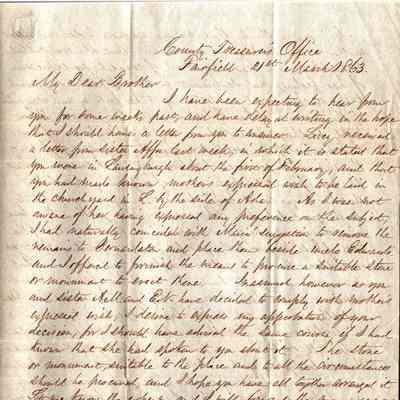 County Treasurers Office
Fairfield 21st March 1863
My Dear Brother
I have been expecting to hear from
you for some weeks past, and have delayed writing in the hope
that I should have a letter from you to answer. Lucy received
a letter from Sister Affa last week, in which it is stated that
you were in about the first of February, and that
you had made known mothers expressed wish to be laid in
the church yard in L by the side of Able. As I was not
aware of her having expressed any preference on the subject,
I had naturally concurred with suggestion to remove the
remains to and place them beside uncle Edwards
and I offered to furnish the means to procure a suitable stone
or monument to erect there. Inasmuch however as you
and Sister Nell and have decided to comply with mothers
expressed wish, I desire to express my approbation of your
decision, for I should have advised the same course if I had
known that she had spoken to you about it. The stone
or monument, suitable to the place and to all the circumstances
should be procured, and I hope you have all together arranged it